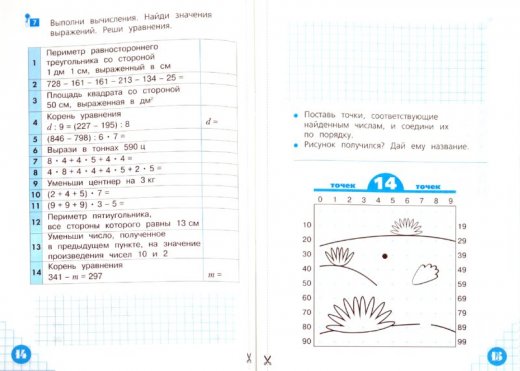 7 Выполни вычисления. Найди значения
выражений. Реши уравнения.
1 Периметр равностороннего
треугольника со стороной
1 дм 1 см, выраженный в см
2 728 – 161 – 161 – 213 – 134 – 25 =
3 Площадь квадрата со стороной
50 см, выраженная в дм²
4 Корень уравнения
d : 9 = (227 – 195) : 8 d =
5 (846 – 798) : 6 · 7 =
6 Вырази в тоннах 590 ц
7 8 · 4 + 4 · 5 + 4 · 4 =
8 4 · 8 + 4 · 4 + 4 · 5 + 2 · 5 =
9 Уменьши центнер на 3 кг
10 (2 + 4 + 5) · 7 =
11 (9 + 9 + 9) · 3 – 5 =
12 Периметр пятиугольника,
все стороны которого равны 13 см
13 Уменьши число, полученное
в предыдущем пункте, на значение
произведения чисел 10 и 2
14 Корень уравнения
341 – m = 297 m =
14
• Поставь точки, соответствующие
найденным числам, и соедини их
по порядку.
• Рисунок получился? Дай ему название.
точек 14 точек
0 1 2 3 4 5 6 7 8 9
10 19
20 29
30 39
40 49
50 59
60 69
70 79
80 89
90 99
15